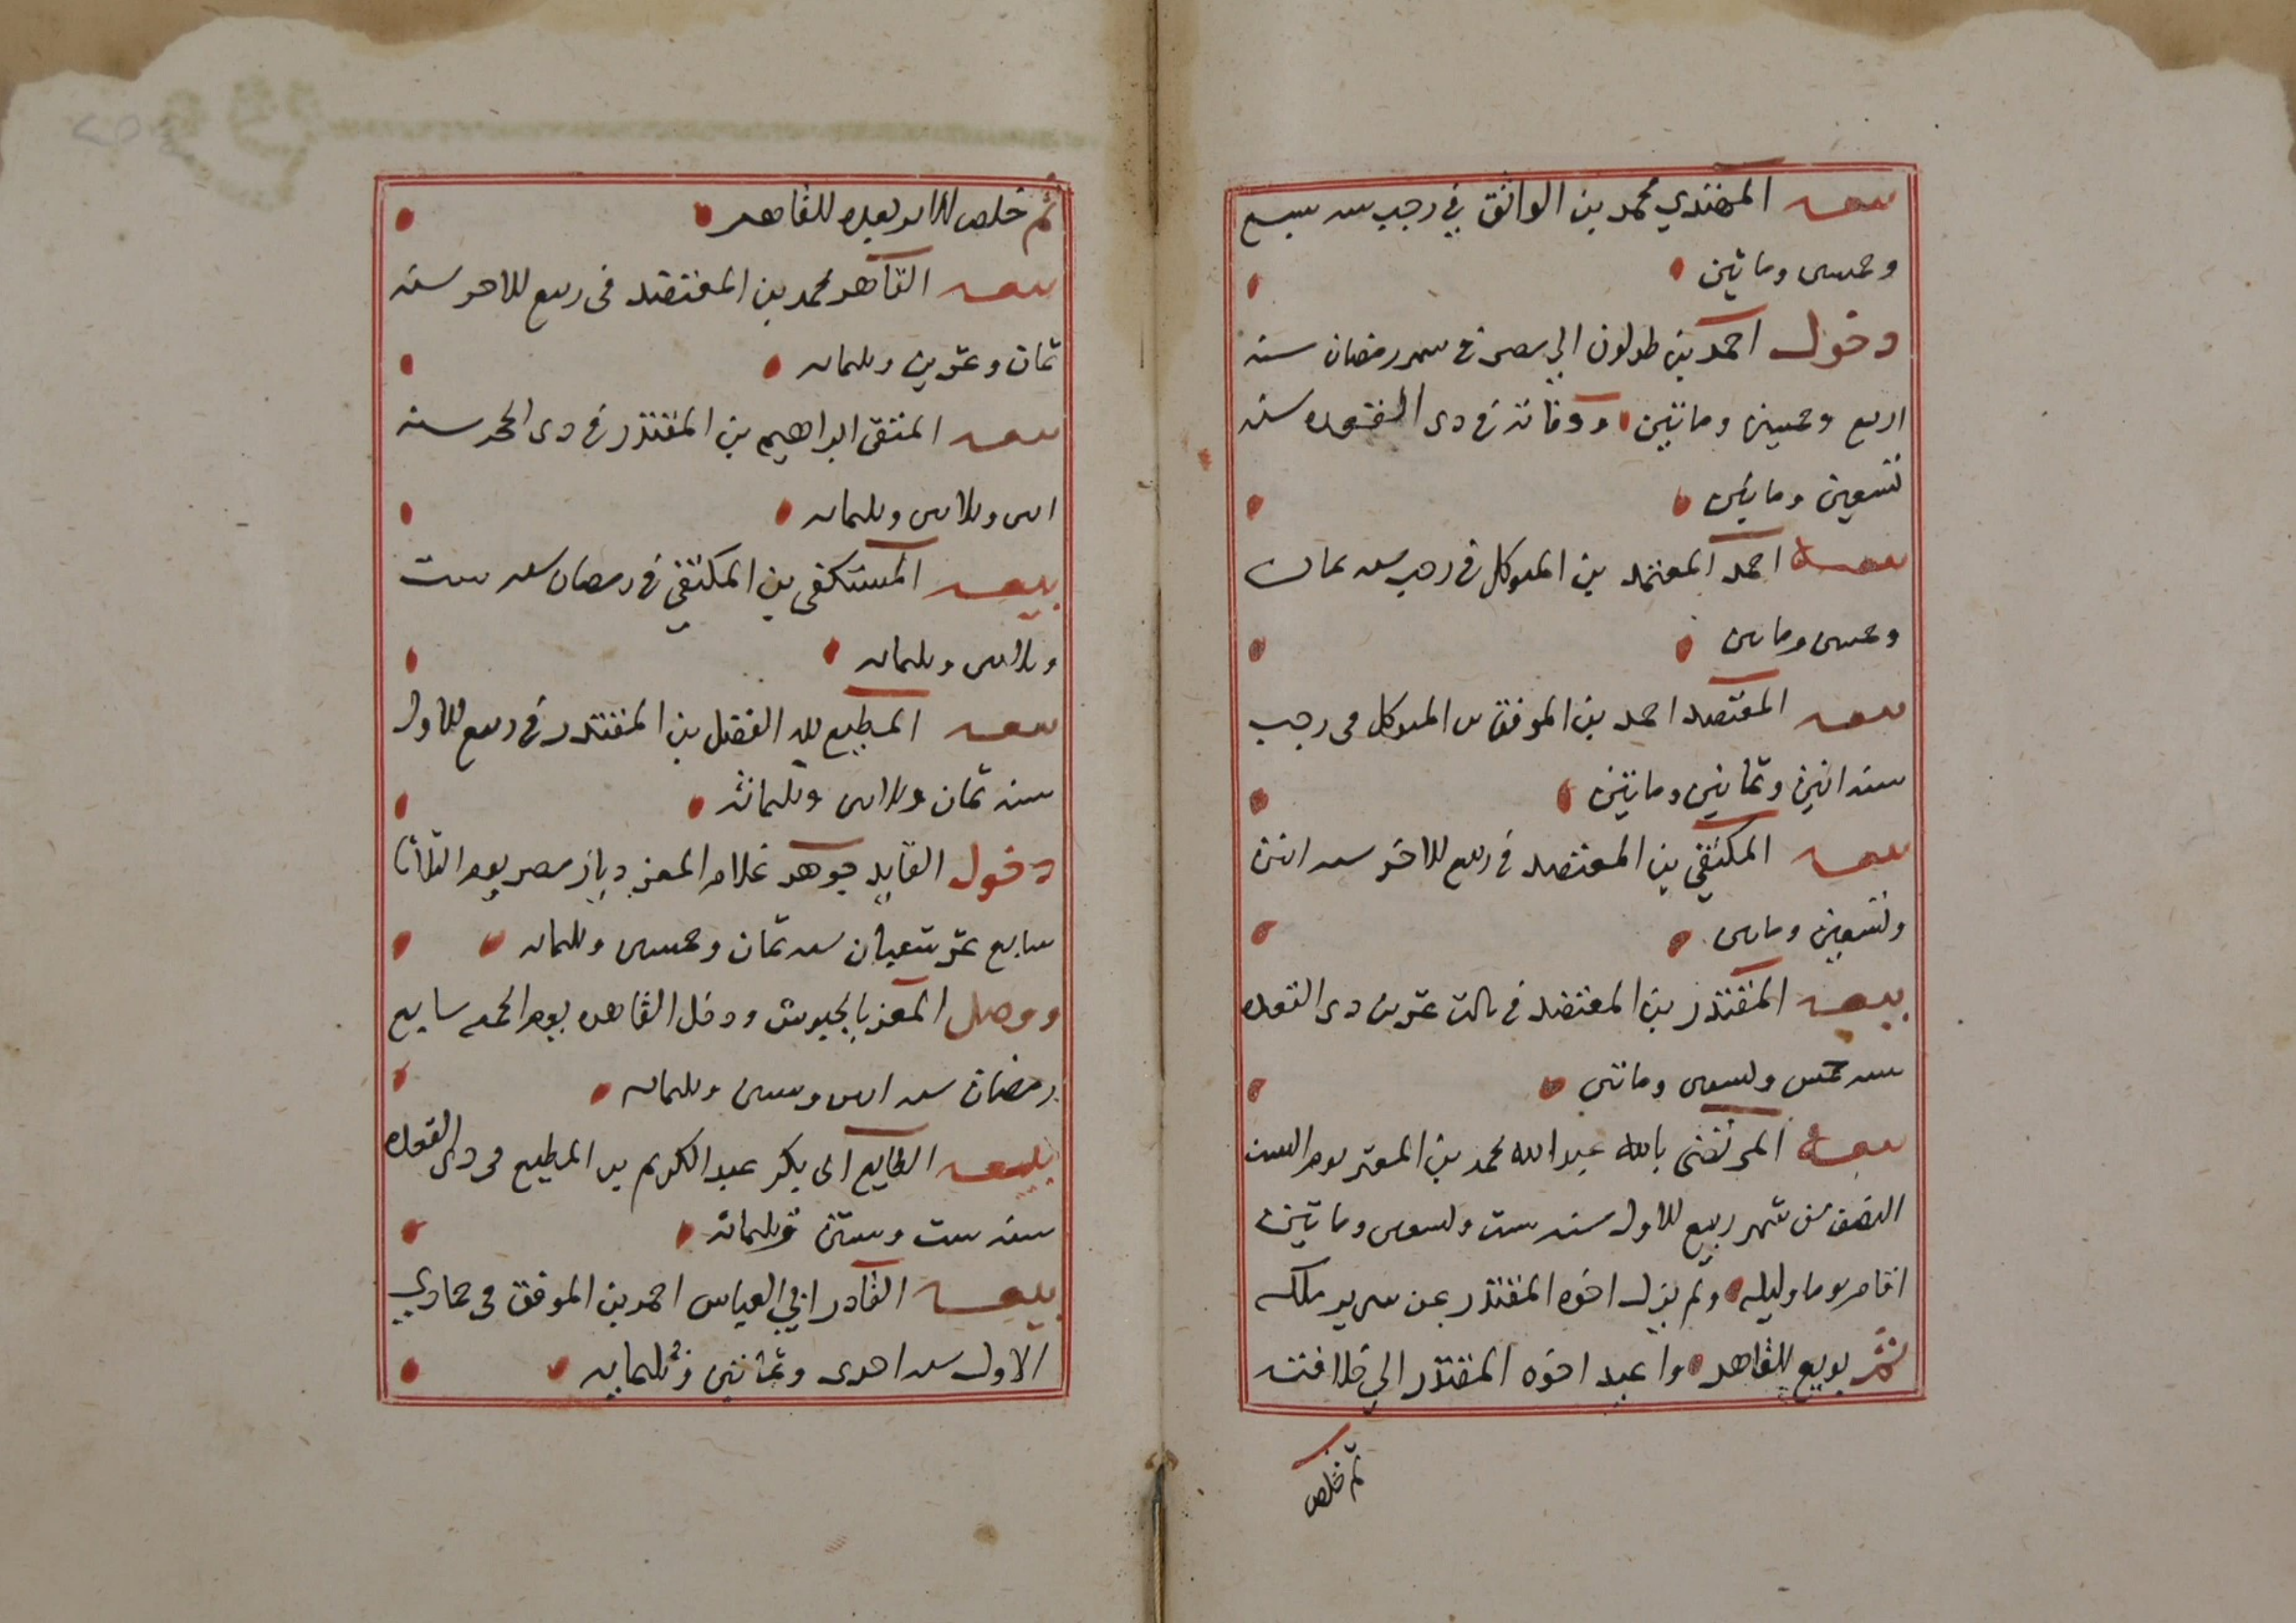 بيعه المهتدي محمد بن الواثق في رجب سنه سبع
وخمسين وماتين
دخول احمد بن طولون الي مصر في شهر رمضان سنه
اربع وخمسين وماتين ووفاته في ذي القعده سنه
تسعين وماتين
بيعة احمد المعتمد بن المتوكل في رجب سنه ثمان
وخمسين وماتين
بيعه المعتضد احمد بن الموفق بن المتوكل في رجب
سنه اثنين وثمانين وماتين
بيعه المكتفي بن المعتضد في ربيع الاخر سنه اثنين
وتسعين وماتين
بيعه المقتدر بن المعتضد في ثالث عشرين ذي القعده
سنه خمس وتسعين وماتين
بيعة المرتضى بالله عبد الله محمد بن المعتز يوم السبت
النصف من شهر ربيع الاول سنه ست وتسعين وماتين
اقام يوما وليله ولم يزل اخوه المقتدر عن سرير ملكه
ثم بويع القاهر واعيد اخوه المقتدر الي خلافته
ثم خلص
ثم خلص الامر بعده للقاهر
بيعه القاهر محمد بن المعتضد في ربيع الاخر سنه
ثمان وعشرين وثلثمايه
بيعه المتقي ابراهيم بن المقتدر في ذي الحجه سنه
اثنين وثلاثين وثلثمايه
بيعه المستكفي بن المكتفي في رمضان سنه ست
وثلاثين وثلثمايه
بيعه المطيع لله الفضل بن المقتدر في ربيع الاول
سنه ثمان وثلاثين وثلثمائه
دخول القايد جوهر غلام المعز ديار مصر يوم الثلاثا
سابع عشر شعبان سنه ثمان وخمسين وثلثمايه
ووصل المعز بالجيوش ودخل القاهره يوم الجمعه سابع
رمضان سنه اثنين وستين وثلثمايه
بيعه الطايع ابي بكر عبد الكريم بن المطيع في ذي القعده
سنه ست وستين وثلثمائه
بيعه القادر ابي العباس احمد بن الموفق في جمادي
الاول سنه احدى وثمانين وثلثمايه